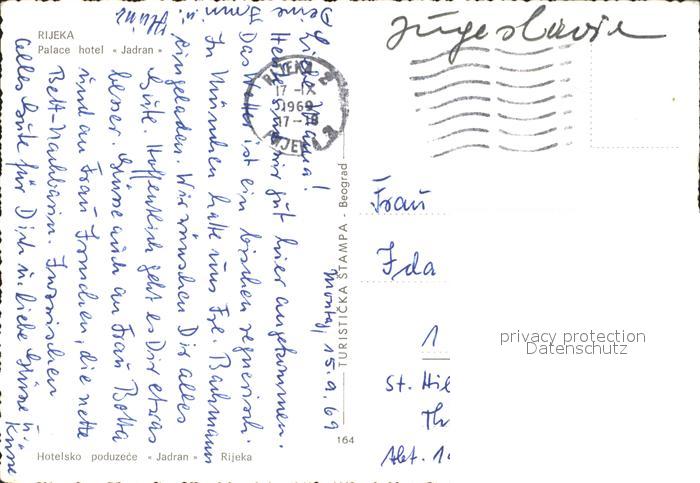 RIJEKA
Palace hotel « Jadran »
Jugoslavie
RIJEKA 2
17 -IX
1969
17-18
RIJEKA 2
Montag, 15.9.69
Liebe Mama!
Heute sind wir gut hier angekommen.
Das Wetter ist ein bischen regnerisch.
In München hatte uns Frl. Bachmann
eingeladen. Wir wünschen Dir alles
Gute. Hoffentlich geht es Dir etwas
besser. Grüsse auch an Frau Botta
und an Frau, die nette
Bett-Nachbarin. Inzwischen
alles Gute für Dich u. liebe Grüsse u.
Küsse
Deine
u.
TURISTIČKA ŠTAMPA - Beograd
164
Hotelsko poduzeće « Jadran » Rijeka
Frau
Ida
1
St. Hil
Th
Abt. 1
privacy protection
Datenschutz